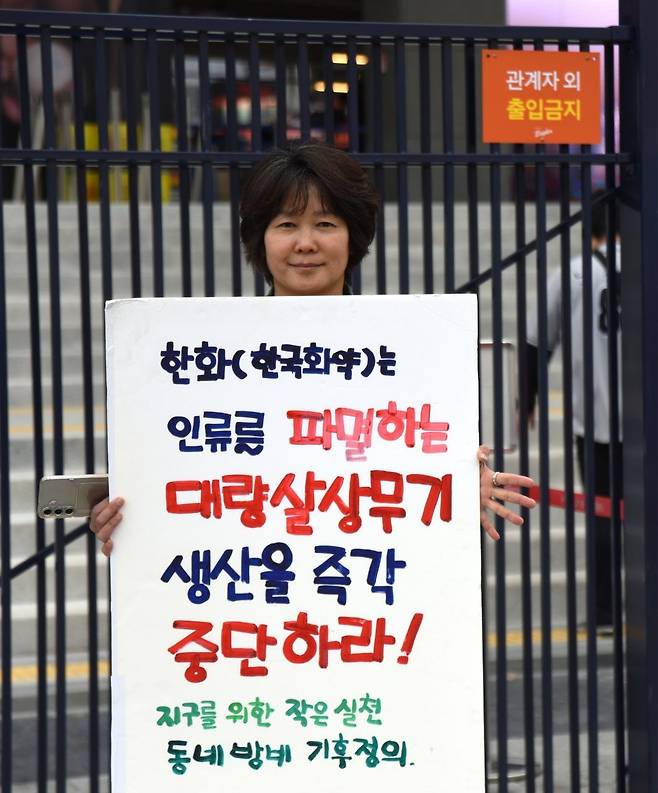 관계자 외
출입금지
한화(한국화약)는
인류를 파멸하는
대량살상무기
생산을 즉각
중단하라!
지구를 위한 작은 실천
동네방네 기후정의.